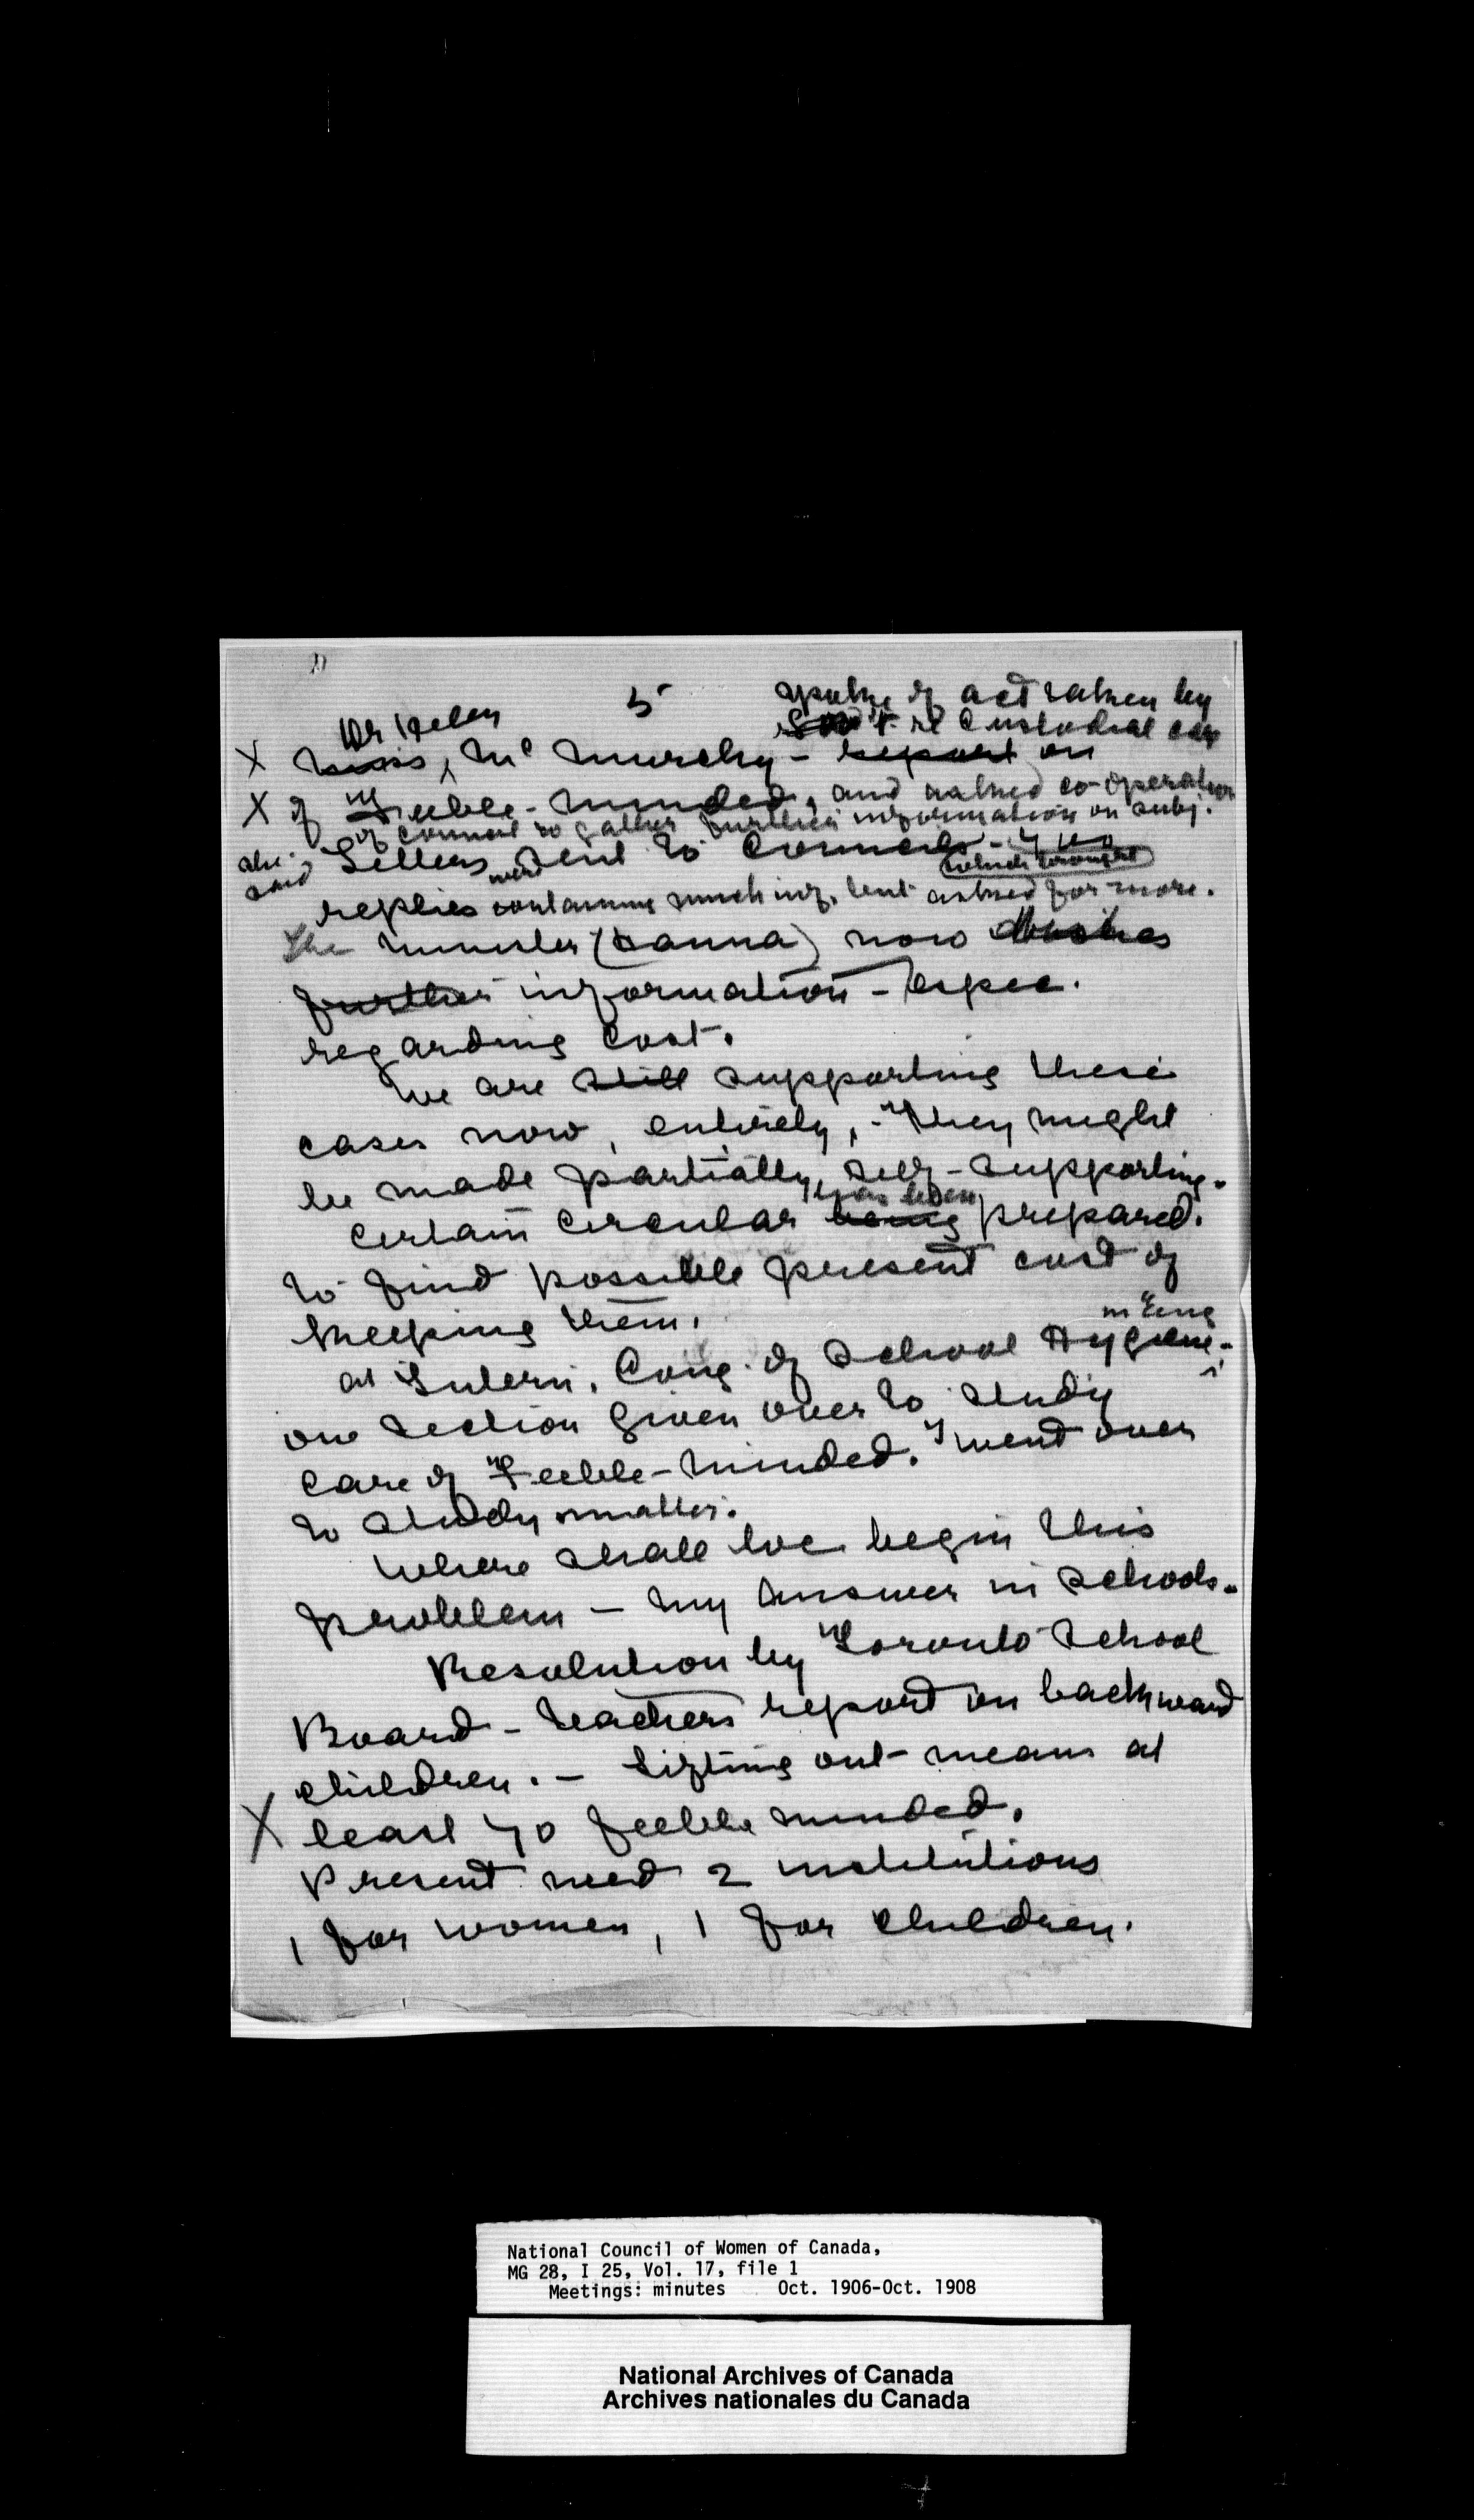 5
spoke of act taken by
Gov't. re Custodial care
Dr Helen
X Miss, Mc Murchy - report on
X of Feeble-minded, and asked co-operation
of Council to gather further information on subj.
she said Letters were sent to Councils -
which brought
replies containing much inf. but asked for more.
The minister (Hanna) now desires
further information - espec.
regarding cost.
We are still supporting these
cases now, entirely, - They might
be made partially self-supporting.
has been
Certain circular being prepared.
to find possible present cost of
keeping them.
in Eng
at Intern. Cong. of School Hygiene -
one section given over to study
care of Feeble-minded. I went over
to study matter.
Where shall we begin this
problem - my answer in schools.
Resolution by Toronto School
Board - teachers report on backward
children. - Sifting out means at
X least 70 feeble minded.
Present need 2 institutions
1 for women, 1 for children.
National Council of Women of Canada,
MG 28, I 25, Vol. 17, file 1
Meetings: minutes Oct. 1906-Oct. 1908
National Archives of Canada
Archives nationales du Canada